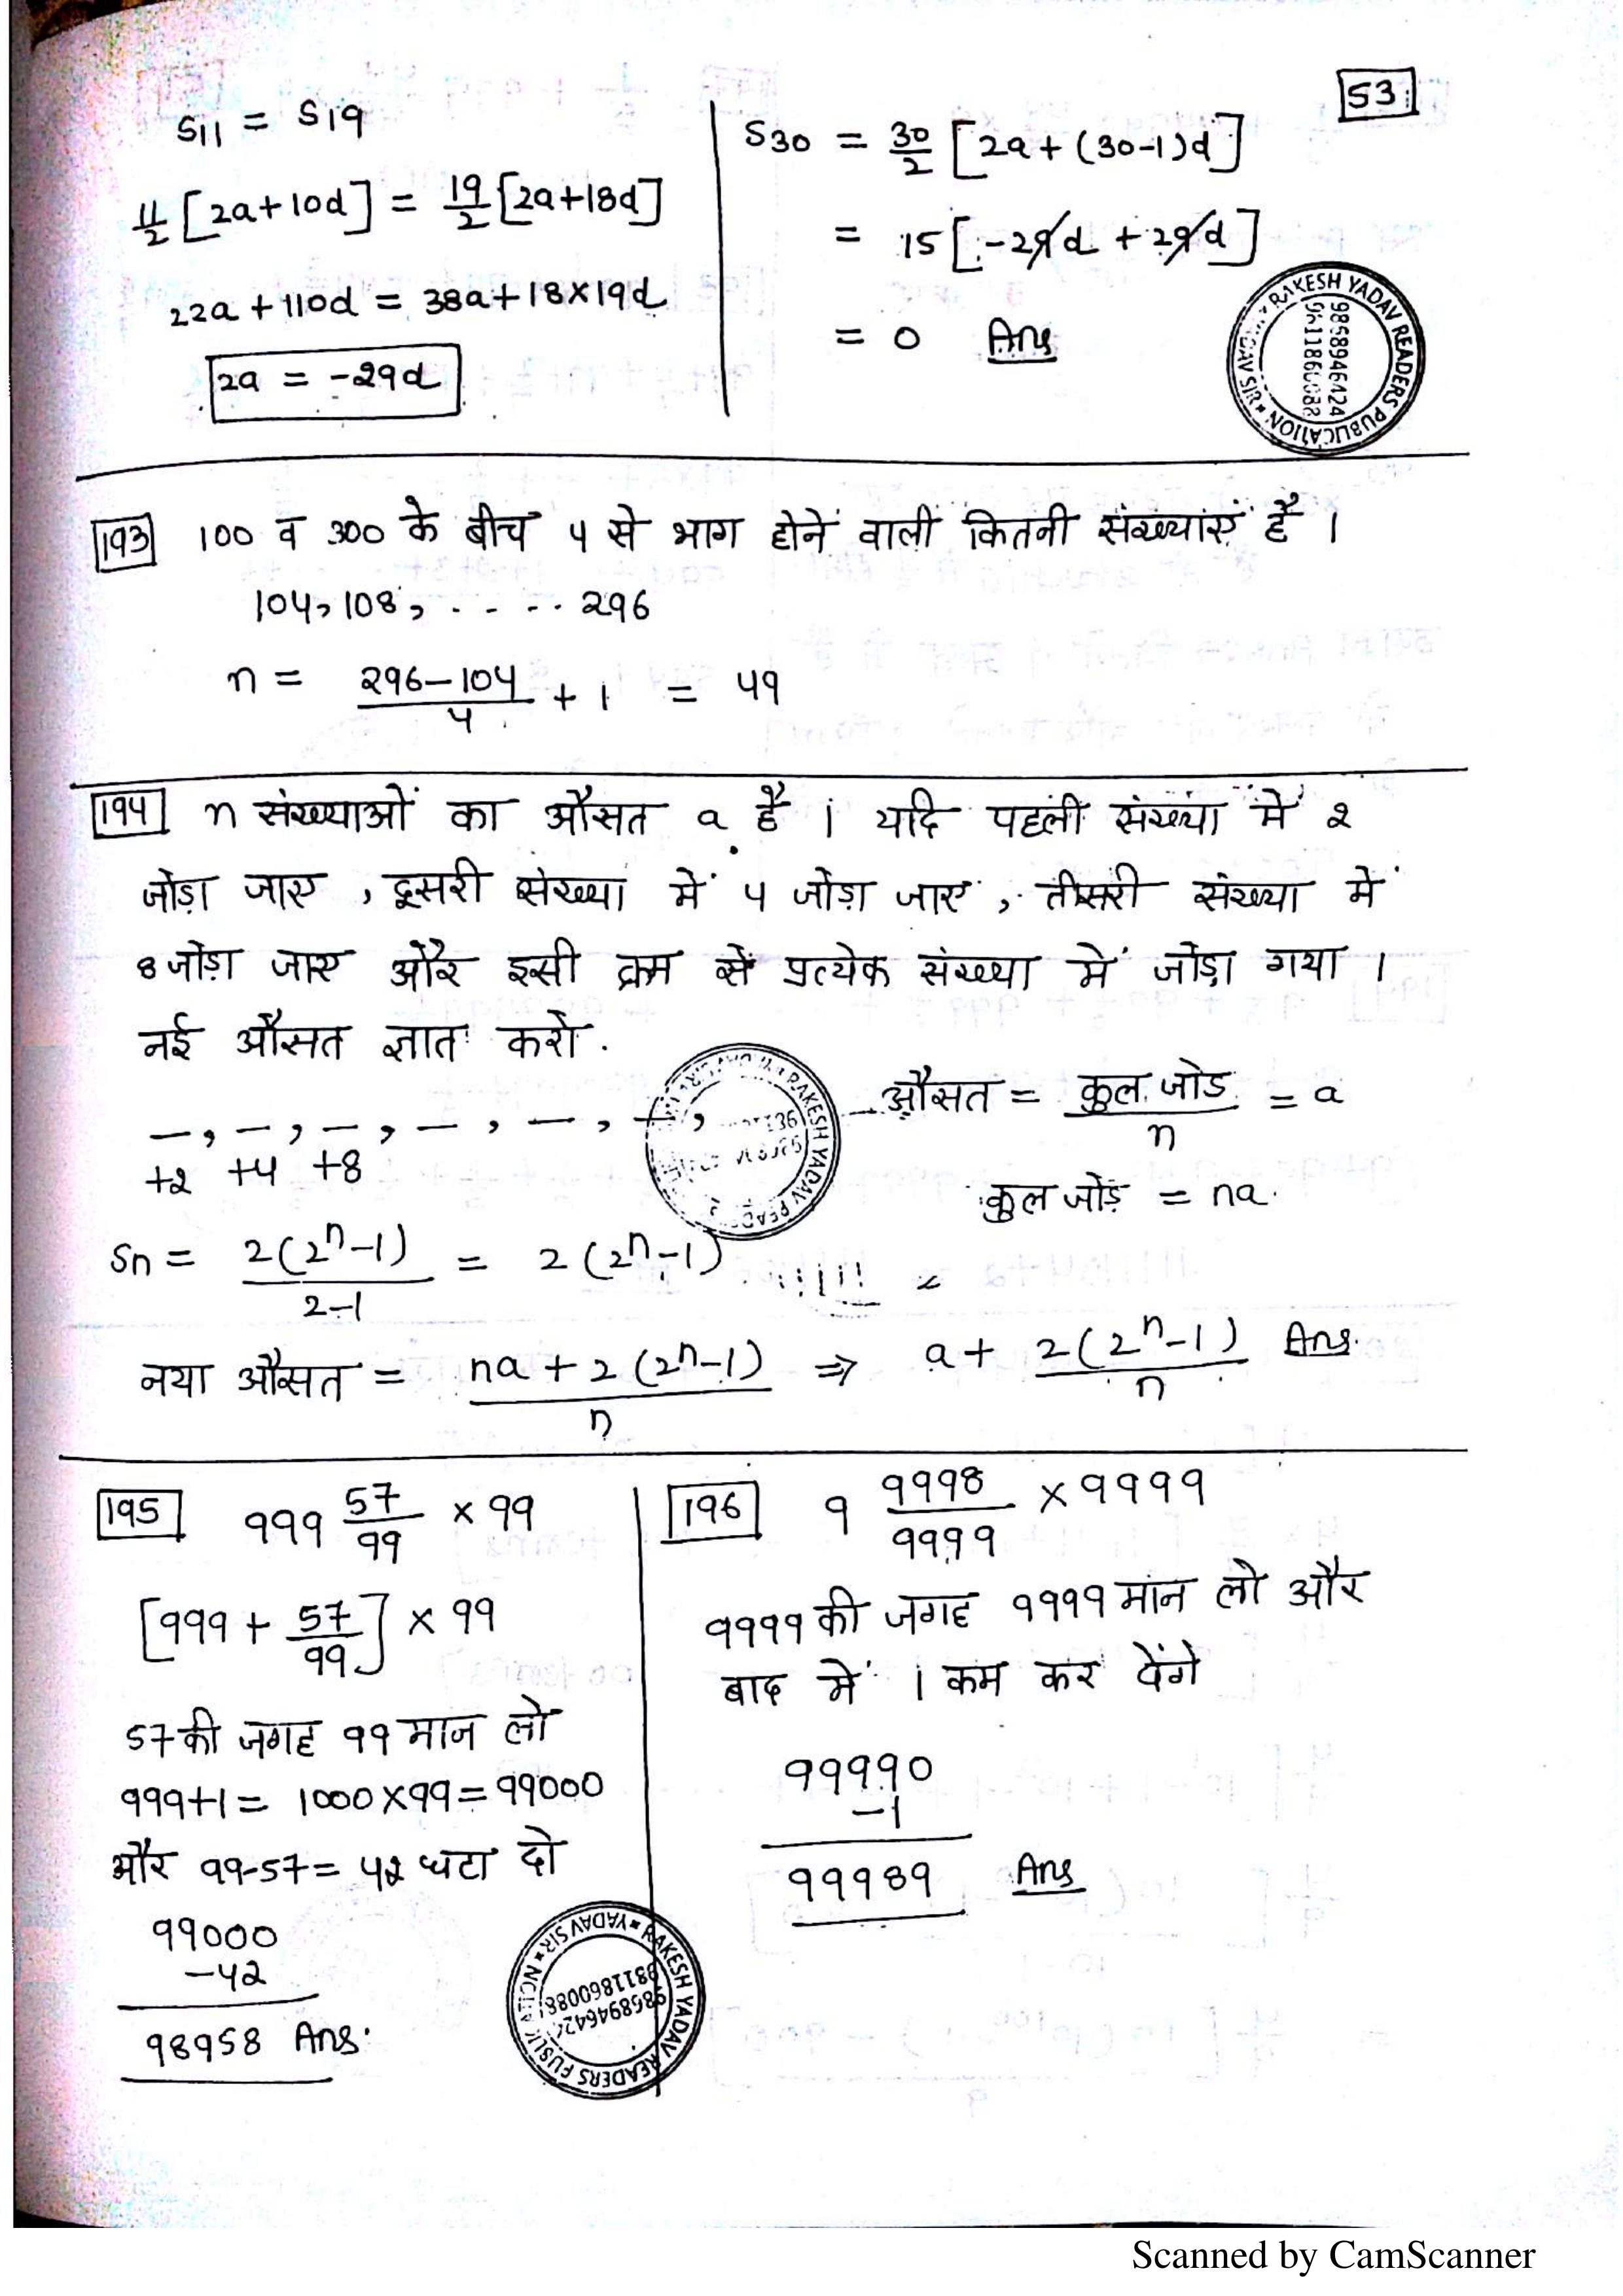 53
S11 = S19
11/2 [2a+10d] = 19/2 [2a+18d]
22a + 110d = 38a+18×19d
2a = -29d
S30 = 30/2 [2a+(30-1)d]
= 15[-29d + 29d]
= 0 Ans
RAKESH YADAV READERS PUBLICATION
9868946424
193 100 व 300 के बीच 4 से भाग होनें वाली कितनी संख्याएं है ।
104, 108, . - - .. 296
n = (296-104)/4 + 1 = 49
194 n संख्याओं का औसत a है । यदि पहली संख्या में 2
जोड़ा जाए , दूसरी संख्या में 4 जोड़ा जाए , तीसरी संख्या में
8 जोड़ा जाए और इसी क्रम से प्रत्येक संख्या में जोड़ा गया ।
नई औसत ज्ञात करो .
—, —, —, —, —, —,
+2 +4 +8
औसत = कुल जोड/n = a
कुल जोड़ = na
Sn = 2(2ⁿ-1)/(2-1) = 2(2ⁿ-1)
नया औसत = (na + 2(2ⁿ-1))/n ⇒ a + 2(2ⁿ-1)/n Ans.
195 999 57/99 × 99
[999 + 57/99] × 99
57 की जगह 99 मान लो
999+1 = 1000×99 = 99000
और 99-57 = 42 घटा दो
99000
-42
98958 Ans.
196 9 9998/9999 × 9999
9999 की जगह 9999 मान लो और
बाद में 1 कम कर देंगे
99990
-1
99989 Ans
Scanned by CamScanner